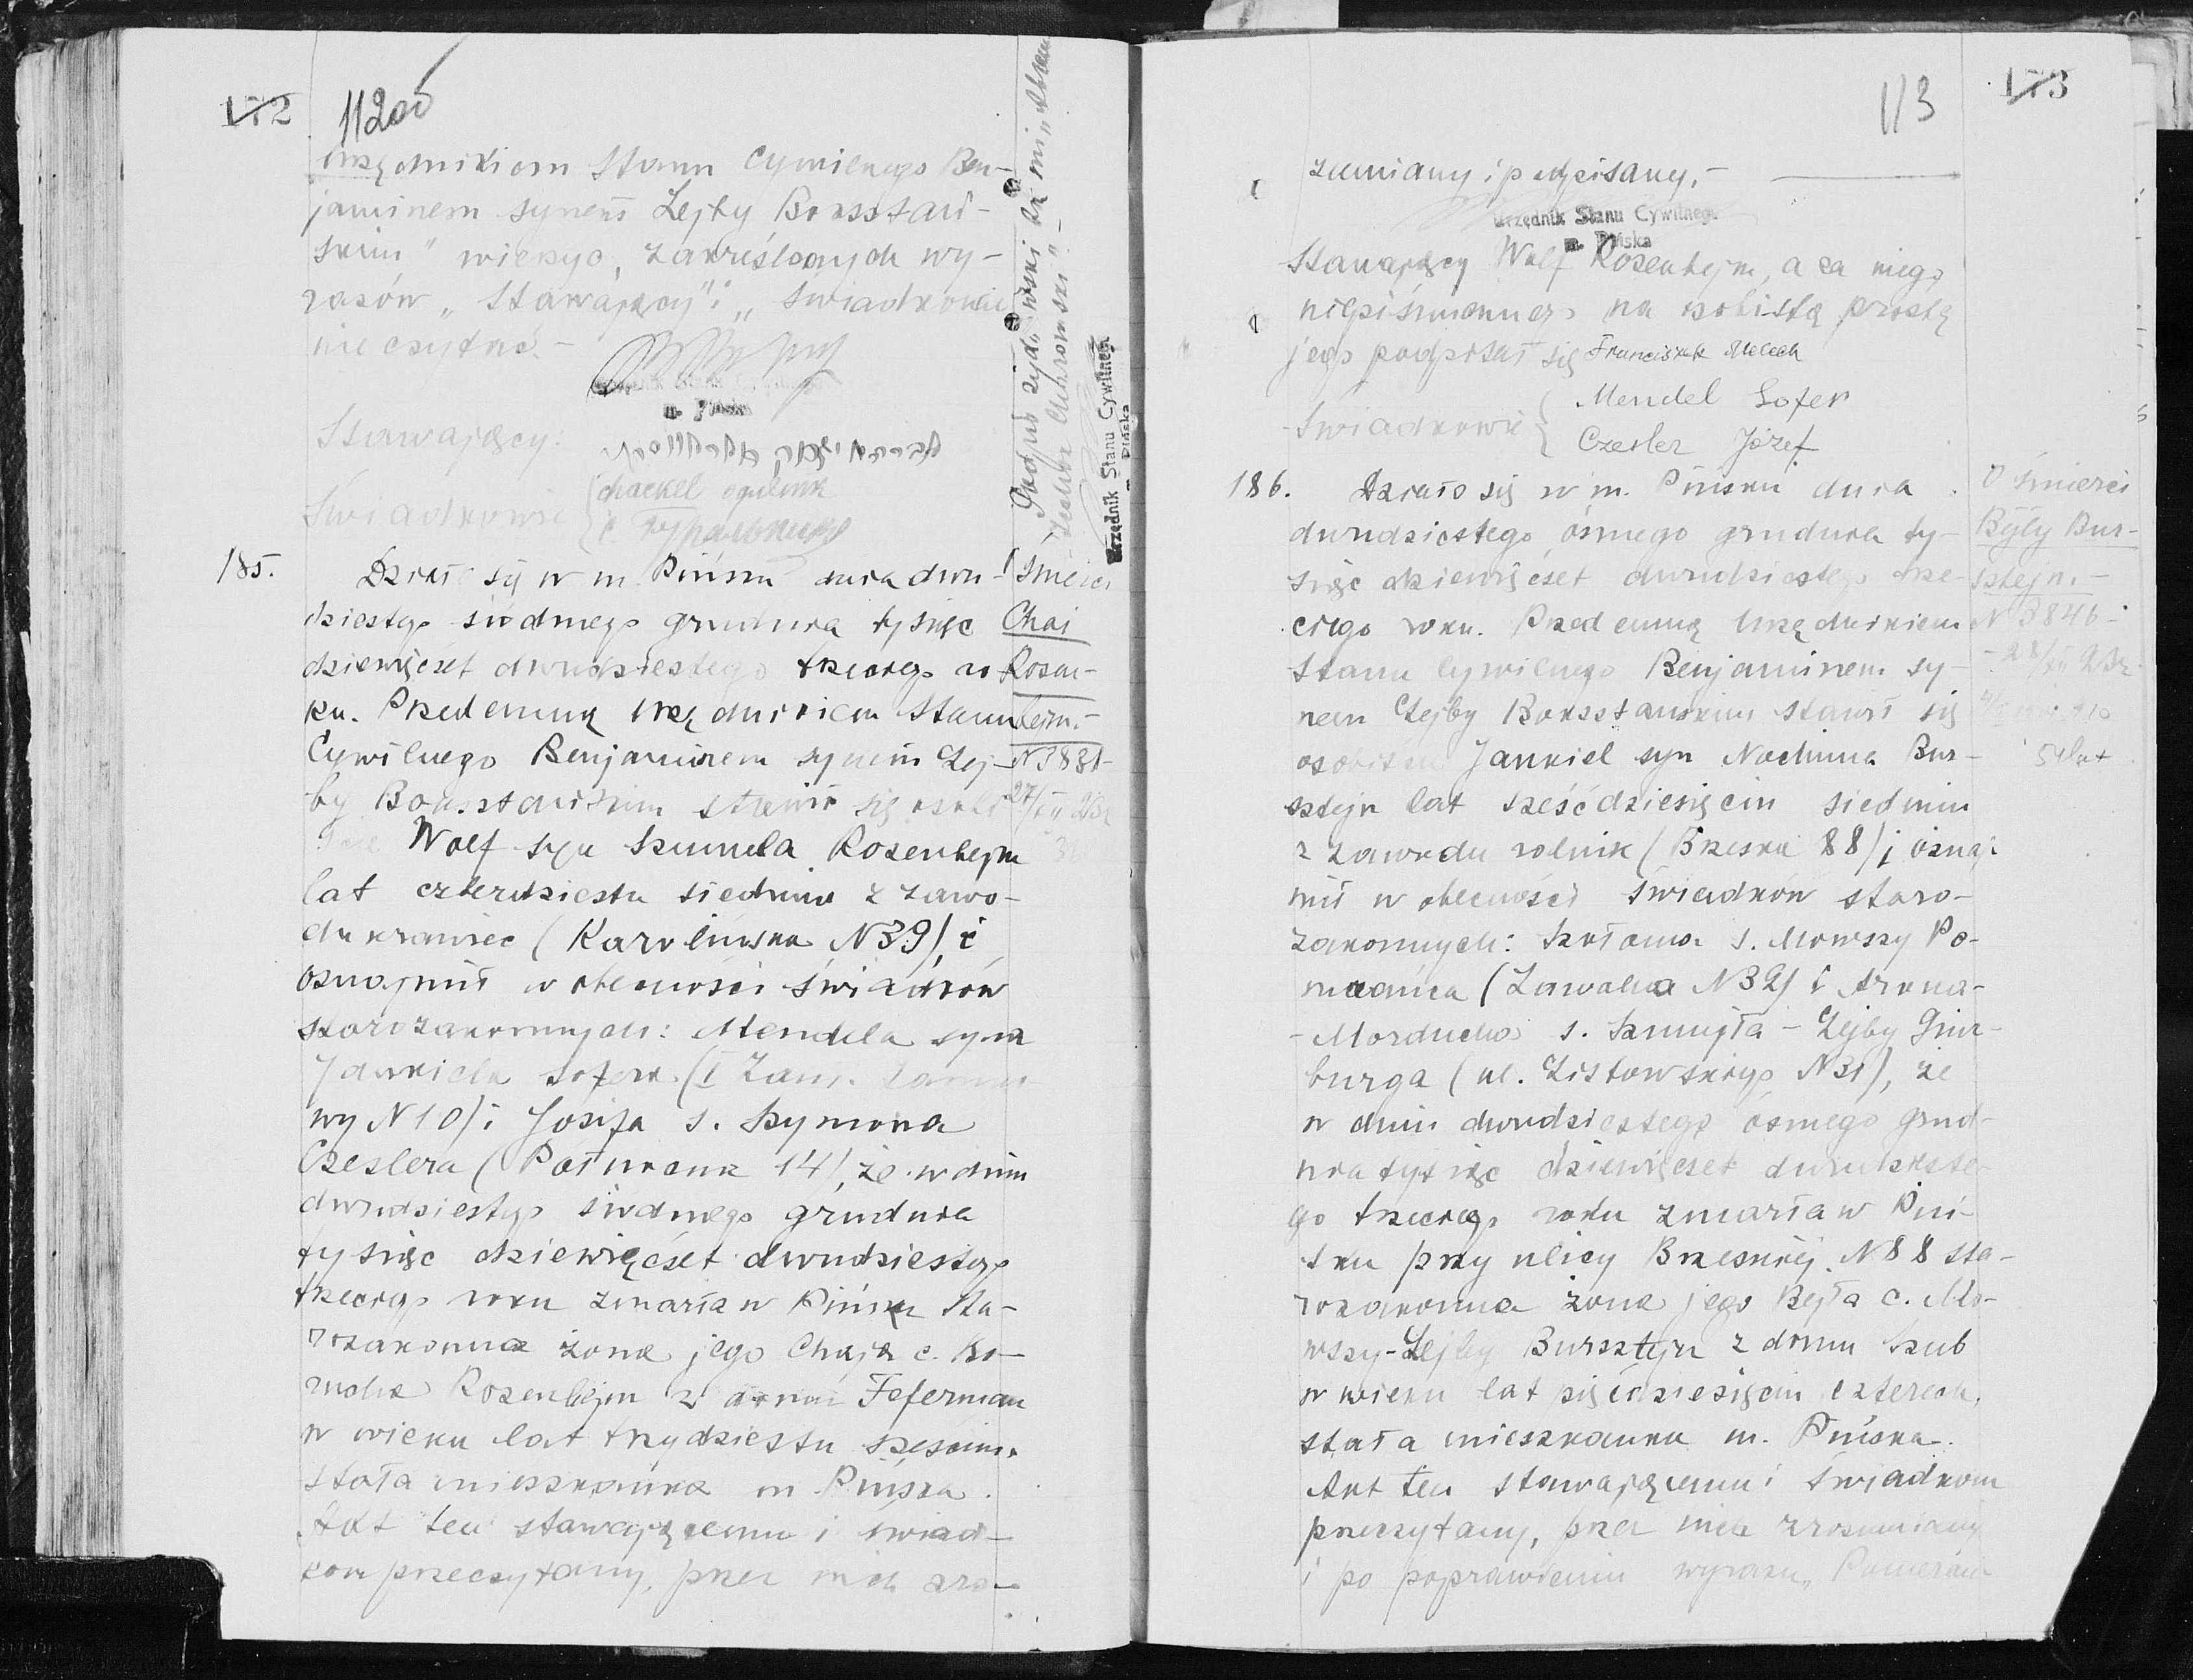 172 112
urzędnikiem Stanu Cywilnego Ben-
jaminem synem Lejby Boksztań-
skim" wiersza, zakreślonych wy-
razów „Stawający" i „Świadkowie
nie czytać.-
m. Pińska
Stawający:
Świadkowie { Chackel
Podpis żydowski
Urzędnik Stanu Cywilnego
m. Pińska
185. Działo się w m. Pińsku dnia dwu-
dziestego siódmego grudnia tysiąc
dziewięćset dwudziestego trzeciego ro-
ku. Przedemną Urzędnikiem Stanu
Cywilnego Benjaminem synem Lej-
by Boksztańskim stawił się osobi-
ście Wolf syn Szmula Rozenhejm
lat czterdziestu siedmiu z zawo-
du krawiec (Karolińska N39), i
oznajmił w obecności świadków
starozakonnych: Mendela syna
Jankiela Sofera (I Zam.
wy N10) i Josifa s. Szymona
Czeslera (Połuboku 14), że w dniu
dwudziestego siódmego grudnia
tysiąc dziewięćset dwudziestego
trzeciego roku zmarła w Pińsku sta-
rozakonna żona jego Chaja c. Bo-
rucha Rozenhejm z domu Feferman
w wieku lat trzydziestu sześciu,
stała mieszkanka m. Pińska.
Akt ten stawającemu i świad-
kom przeczytany, przez nich zro-
O śmierci
Chai
Rozen-
hejm.-
N3831-
27/XII 23r
113 173
zumiany i podpisany.-
Urzędnik Stanu Cywilnego
m. Pińska
Stawający Wolf Rozenhejm, a za niego
niepiśmiennego na osobistą prośbę
jego podpisał się Franciszek Melech
Świadkowie { Mendel Sofer
Czesler Józef
186. Działo się w m. Pińsku dnia
dwudziestego ósmego grudnia ty-
siąc dziewięćset dwudziestego trze-
ciego roku. Przedemną Urzędnikiem
Stanu Cywilnego Benjaminem sy-
nem Lejby Boksztańskim stawił się
osobiście Jankiel syn Nochima Bur-
sztejn lat sześćdziesięciu siedmiu
z zawodu rolnik (Brzeska 88) i oznaj-
mił w obecności świadków staro-
zakonnych: Szołoma s. Mowszy Po-
meranca (Zawalna N32) i Arona-
-Morducha s. Szmujła-Lejby Ginz-
burga (ul. Listowskiego N31), że
w dniu dwudziestego ósmego grud-
nia tysiąc dziewięćset dwudzieste-
go trzeciego roku zmarła w Piń-
sku przy ulicy Brzeskiej N88 sta-
rozakonna żona jego Bejła c. Mo-
wszy-Lejby Bursztejn z domu Szub
w wieku lat pięćdziesięciu czterech,
stała mieszkanka m. Pińska.
Akt ten stawającemu i świadkom
przeczytany, przez nich zrozumiany
i po poprawieniu wyrazu „Pomeranca
O śmierci
Bejły Bur-
sztejn.-
N3846-
28/XII 23r
54 lat